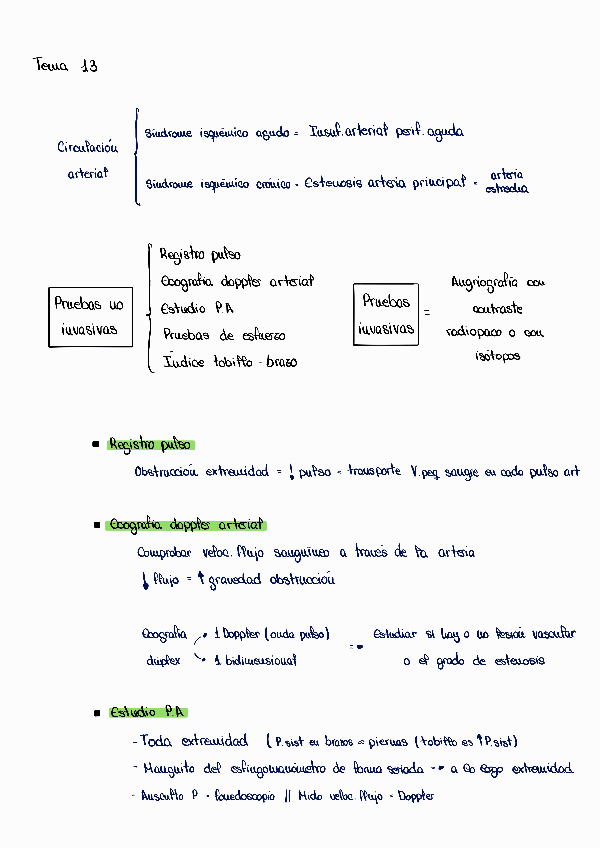 Tema 13
Circulación
arterial
Síndrome isquémico agudo = Insuf. arterial perif. aguda
Síndrome isquémico crónico = Estenosis arteria principal = arteria
estrecha
Pruebas no
invasivas
Registro pulso
Ecografía doppler arterial
Estudio P.A
Pruebas de esfuerzo
Índice tobillo - brazo
Pruebas
invasivas
=
Angiografía con
contraste
radiopaco o con
isótopos
▪ Registro pulso
Obstrucción extremidad = ↓ pulso = transporte V. peq sangre en cada pulso art
▪ Ecografía doppler arterial
Comprobar veloc. flujo sanguíneo a través de la arteria
↓ flujo = ↑ gravedad obstrucción
Ecografía • 1 Doppler (onda pulso)
dúplex • 1 bidimensional
Estudiar si hay o no lesión vascular
o el grado de estenosis
▪ Estudio P.A
- Toda extremidad ( P. sist en brazos = piernas (tobillo es ↑ P. sist)
- Manguito del esfingomanómetro de forma seriada → a lo largo extremidad
- Ausculto P - fonedoscopio || Mido veloc. flujo - Doppler